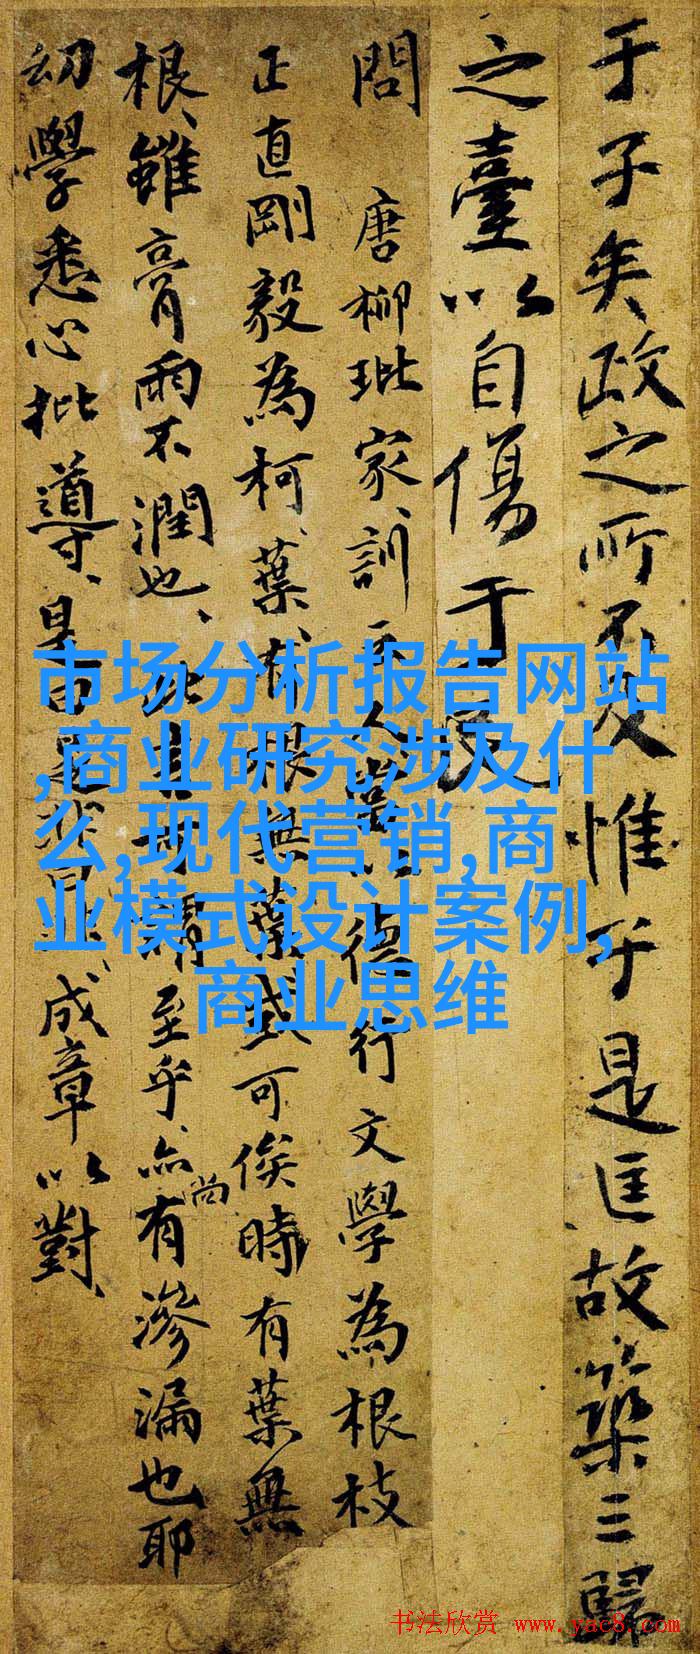 于子矣政之所不及惟于是匡故築三歸
之臺以自傷于民
問 唐柳玭家訓 人 德行文學為根枝
正直剛毅為柯葉、有根無葉或可俟時有葉無
根、雖膏雨不潤也、 至乎、亦尚有滲漏也耶
幼學悉心批導、 成章以對、
市场分析报告网站
,商业研究涉及什
么,现代营销,商
业模式设计案例,
商业思维
书法欣赏 www.yac8.com